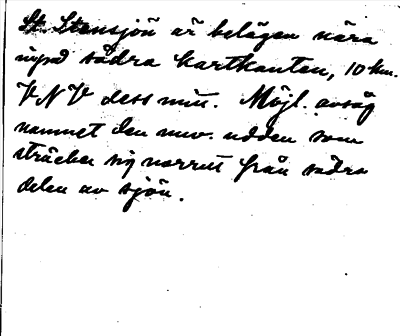 St. Stensjön är belägen nära
södra kartkanten, 10 km.
VNV dess mitt. Möjl. avsåg
namnet den udden som
sträcker sig norrut från södra
delen av sjön.